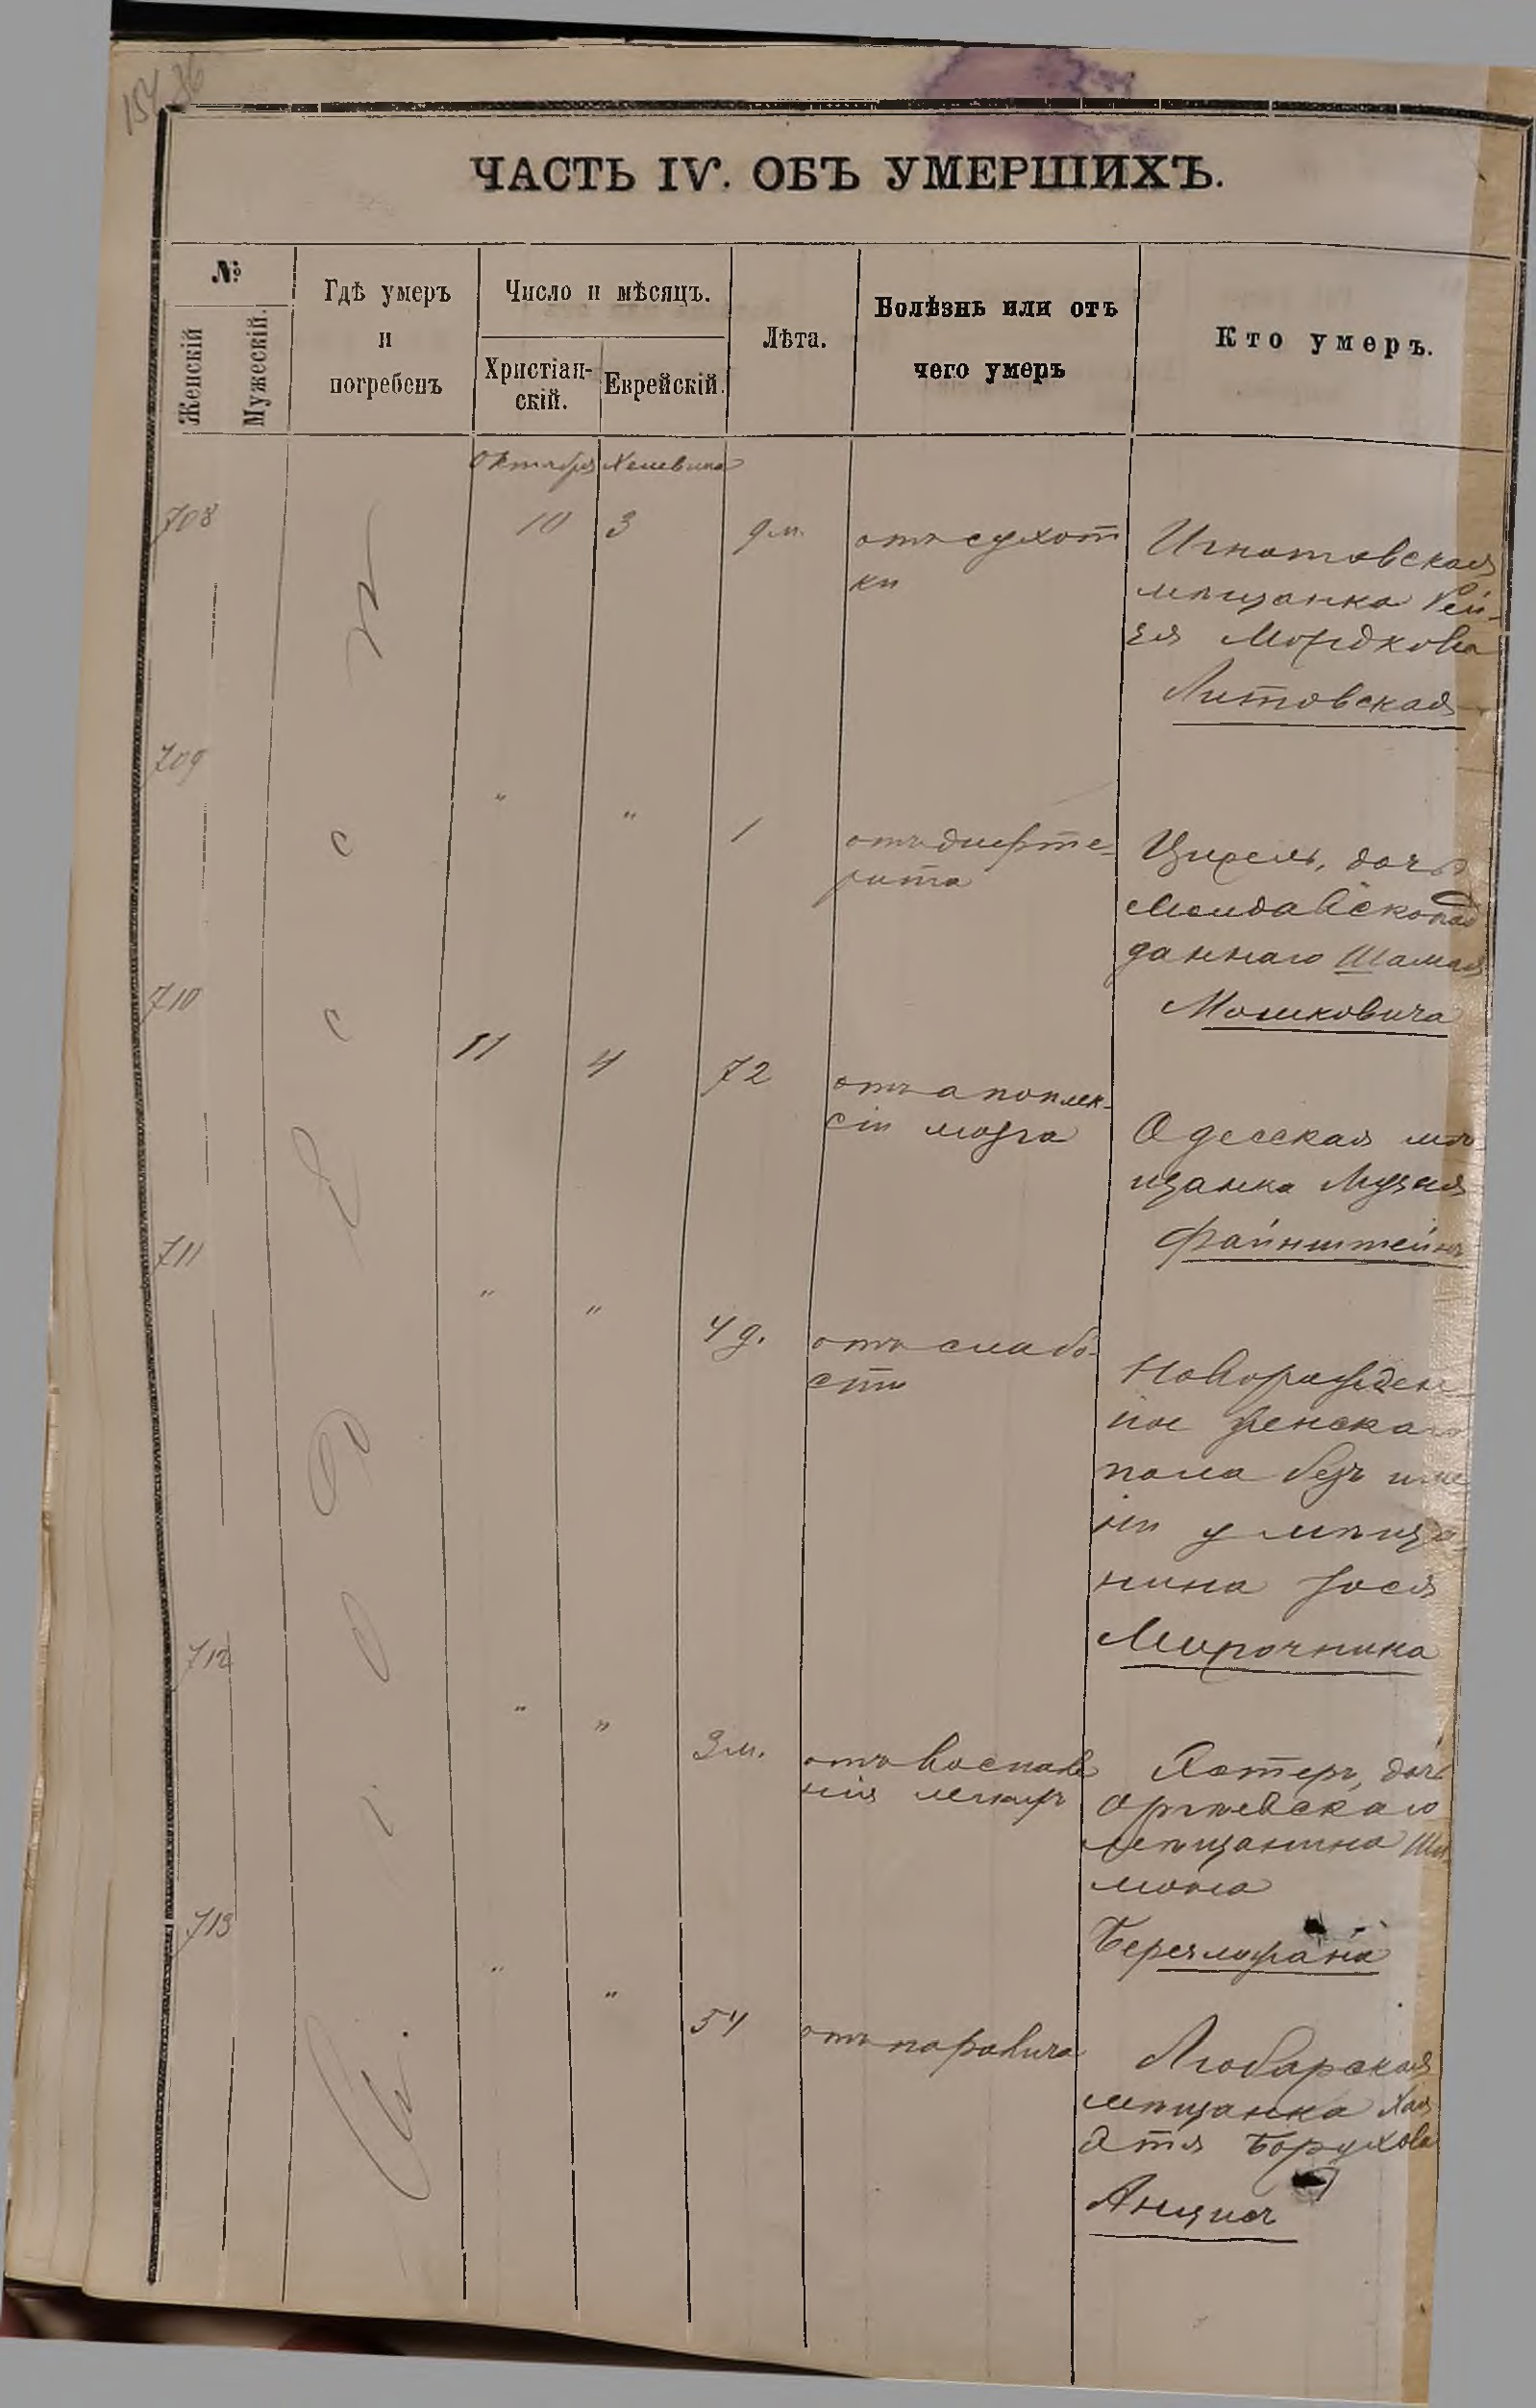 154 86
ЧАСТЬ IV. ОБЪ УМЕРШИХЪ.
№
Женскій
Мужескій.
Гдѣ умеръ
и
погребенъ
Число и мѣсяцъ.
Христіан-
скій.
Еврейскій.
Лѣта.
Болѣзнь или отъ
чего умеръ
Кто умеръ.
Октября Хешвина
708 10 3 9 м. отъ сухот
ки
Игнатовская
мѣщанка Рей-
зя Мордкова
Литовская
709 " " 1 отъ дифте-
рита
Цирель, дочь
Молдавско под
даннаго Шамая
Мошковича
710 11 4 72 отъ апоплек-
сіи мозга
Одесская мѣ
щанка
Файнштейнъ
711 " " 4 д. отъ слабо-
сти
Новорожден
ное женскаго
пола безъ име
ни у мѣща-
нина Іося
Мирочника
712 " " 3 м. отъ воспале
нія легкихъ
Эстеръ, дочь
Оргѣевскаго
мѣщанина Ши-
мона
713 " " 54 отъ паралича
Любарская
мѣщанка Хая
Этя Борухова
Анцисъ
Одесса